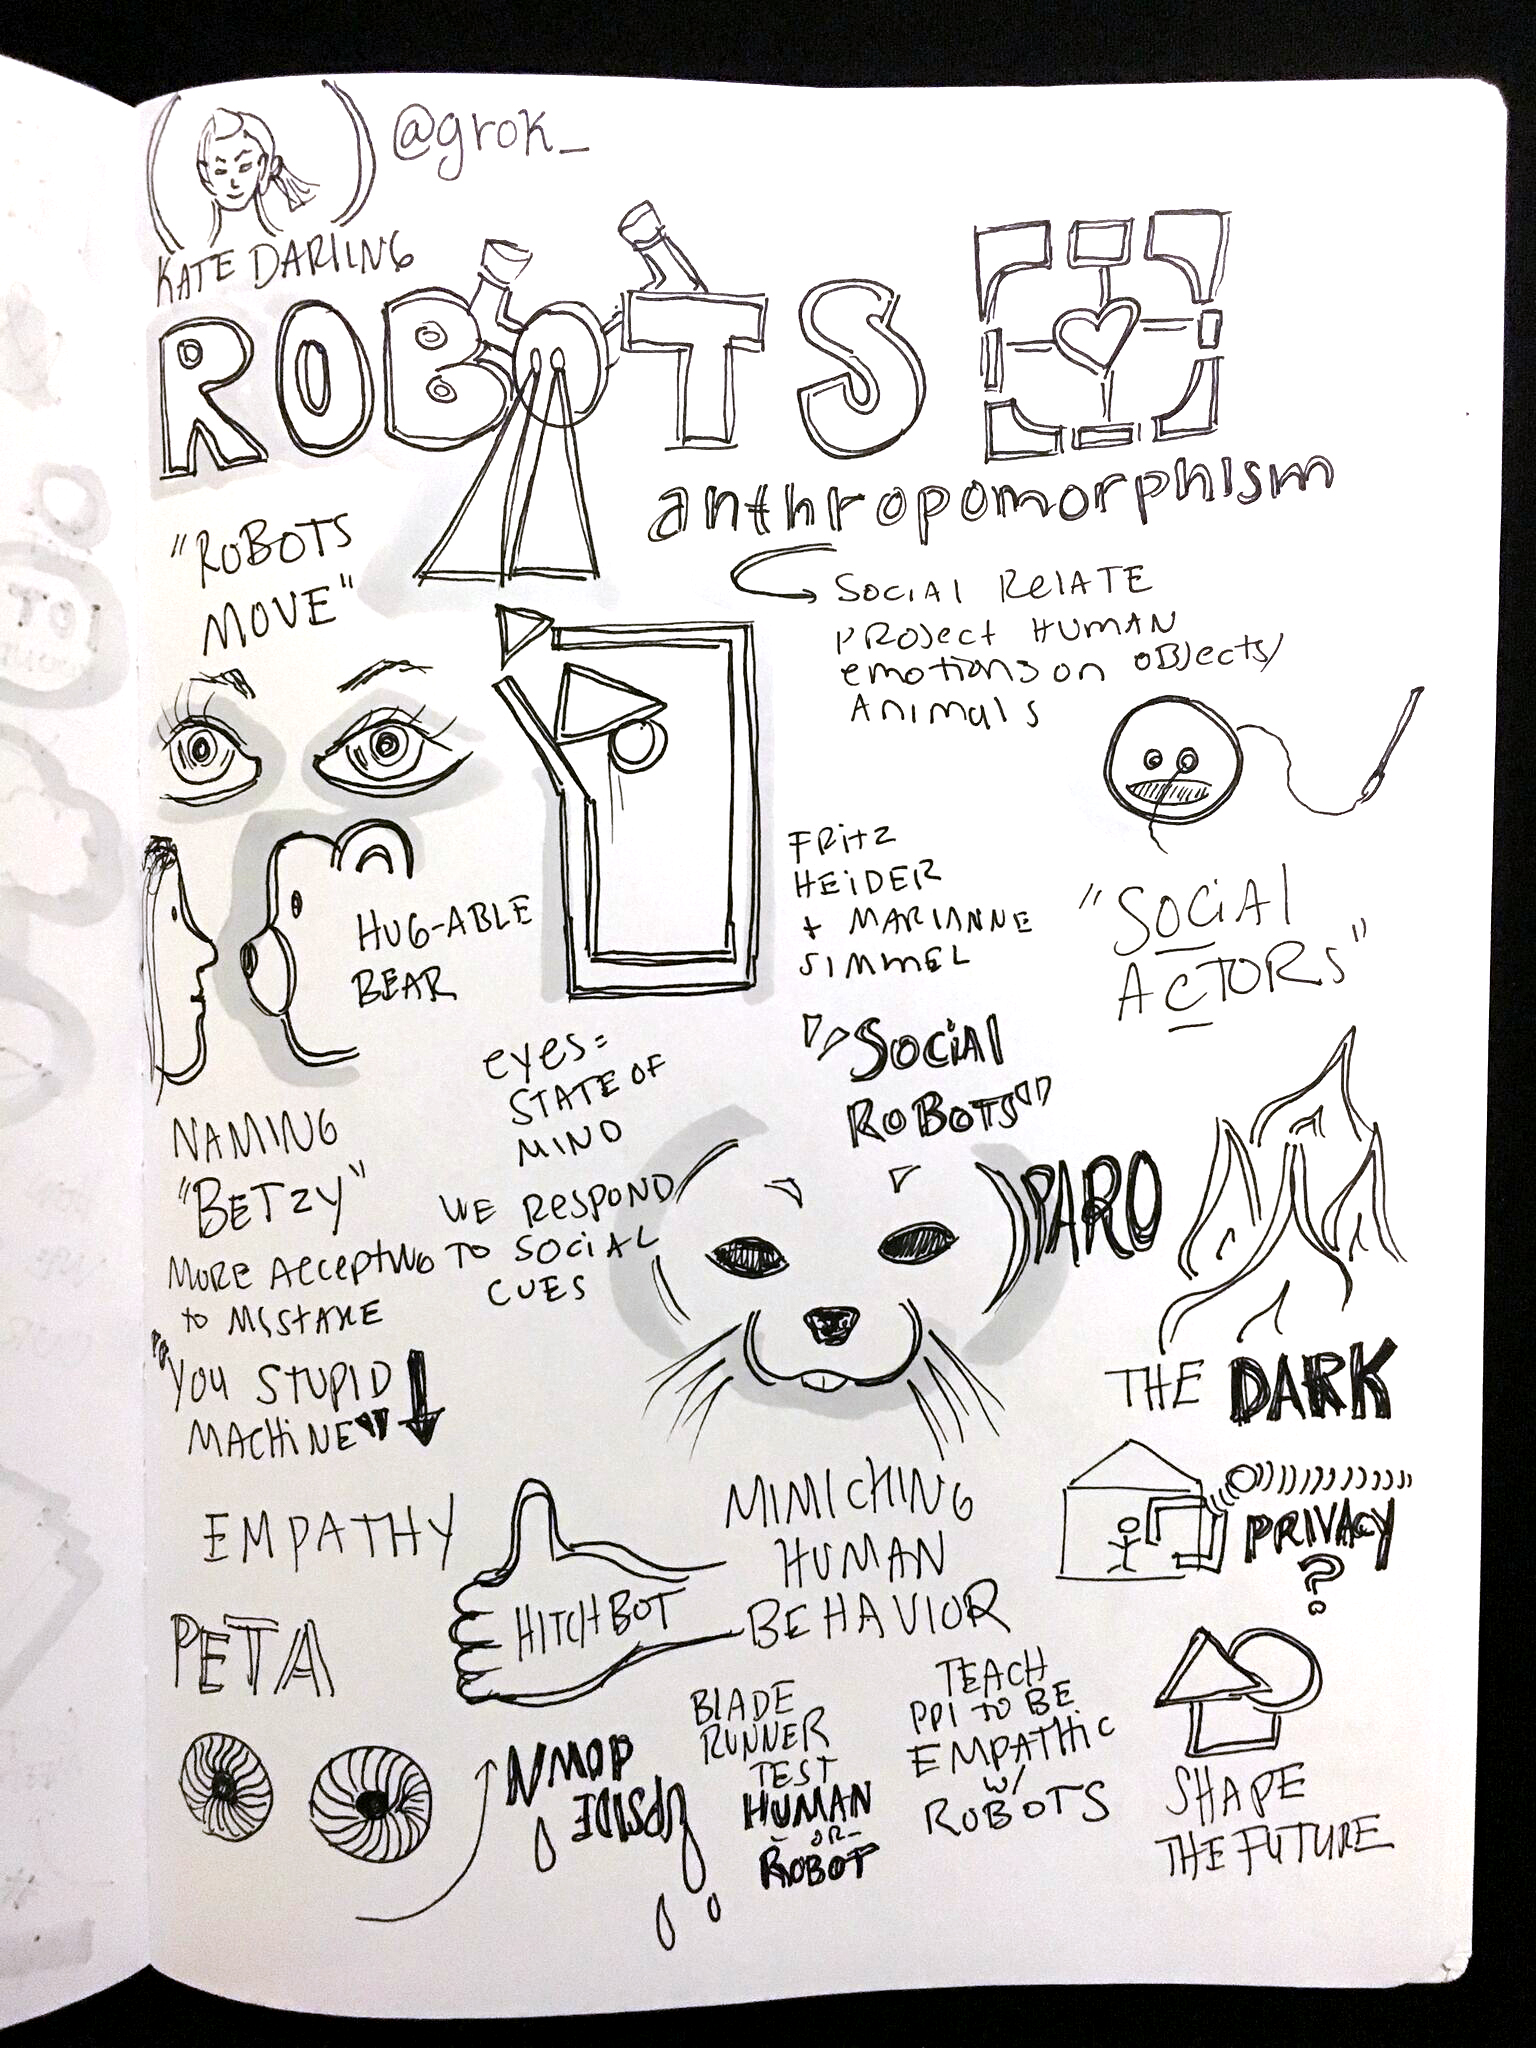 @grok_
KATE DARLING
ROBOTS
anthropomorphism
"ROBOTS
MOVE"
SOCIAL RELATE
PROJECT HUMAN
emotions on OBJECTS/
ANIMALS
FRITZ
HEIDER
+ MARIANNE
SIMMEL
"SOCIAL
ACTORS"
HUG-ABLE
BEAR
eyes=
STATE OF
MIND
"SOCIAL
ROBOTS"
PARO
NAMING
"BETZY"
MORE ACCEPTING
to MISTAKE
"YOU STUPID
MACHINE"
WE RESPOND
TO SOCIAL
CUES
THE DARK
PRIVACY
?
EMPATHY
HITCHBOT
MIMICHING
HUMAN
BEHAVIOR
PETA
UPSIDE
DOWN
BLADE
RUNNER
TEST
HUMAN
-OR-
ROBOT
TEACH
PPl TO BE
EMPATHIC
w/
ROBOTS
SHAPE
THE FUTURE